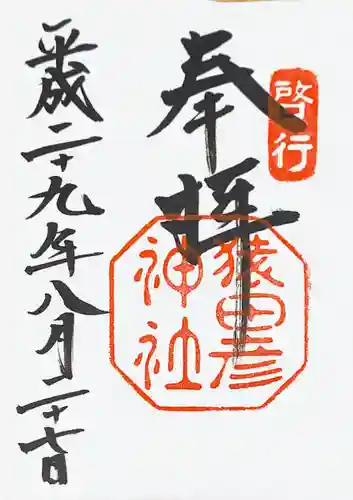 啓行
奉拝
猿田彦
神社
平成二十九年八月二十七日